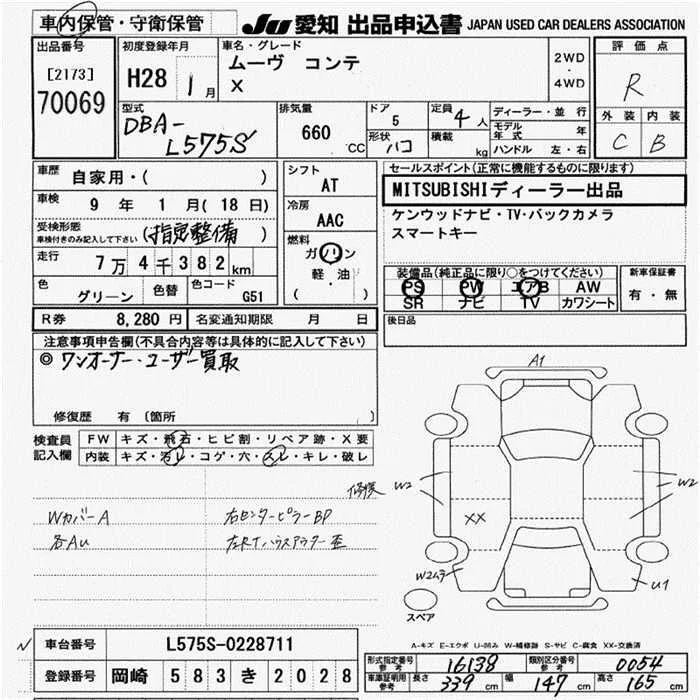 車内保管・守衛保管
JU 愛知 出品申込書 JAPAN USED CAR DEALERS ASSOCIATION
出品番号
[2173]
70069
初度登録年月
H28 1月
車名・グレード
ムーヴ コンテ
X
2WD
・
4WD
評価点
R
外装 内装
C B
型式
DBA-
L575S
排気量
660 CC
ドア
5
形状
ハコ
定員 4 人
積載 kg
ディーラー・並行
モデル年式 年
ハンドル 左・右
車歴
自家用・( )
車検
9 年 1 月 ( 18 日)
受検形態
車検付きのみ記入して下さい (指定整備)
走行
7万4千382km
色
グリーン
色替
色コード
G51
シフト
AT
冷房
AAC
燃料
ガソリン
軽・油
( )
セールスポイント(正常に機能するものに限ります)
MITSUBISHIディーラー出品
ケンウッドナビ・TV・バックカメラ
スマートキー
装備品(純正品に限り○をつけてください)
PS PW エアB AW
SR ナビ TV カワシート
新車保証書
有・無
R券 8,280 円 名変通知期限 月 日
後日品
注意事項申告欄(不具合内容等は具体的に記入して下さい)
◎ ワンオーナー・ユーザー買取
修復歴 有 〔箇所 〕
検査員
記入欄
FW キズ・飛石・ヒビ割・リペア跡・X要
内装 キズ・汚レ・コゲ・穴・スレ・キレ・破レ
WカバーA
各AU
右センターピラーBP
左RTハウスアウター歪
A1
修復 W2
W2
XX
W2ムラ
U1
スペア
A-キズ E-エクボ U-凹み W-補修跡 S-サビ C-腐食 XX-交換済
車台番号 L575S-0228711
登録番号 岡崎 583 き 2028
型式指定番号
参考
16138
類別区分番号
参考
0054
車庫証明用
参考
長さ 339 cm 幅 147 cm 高さ 165 cm